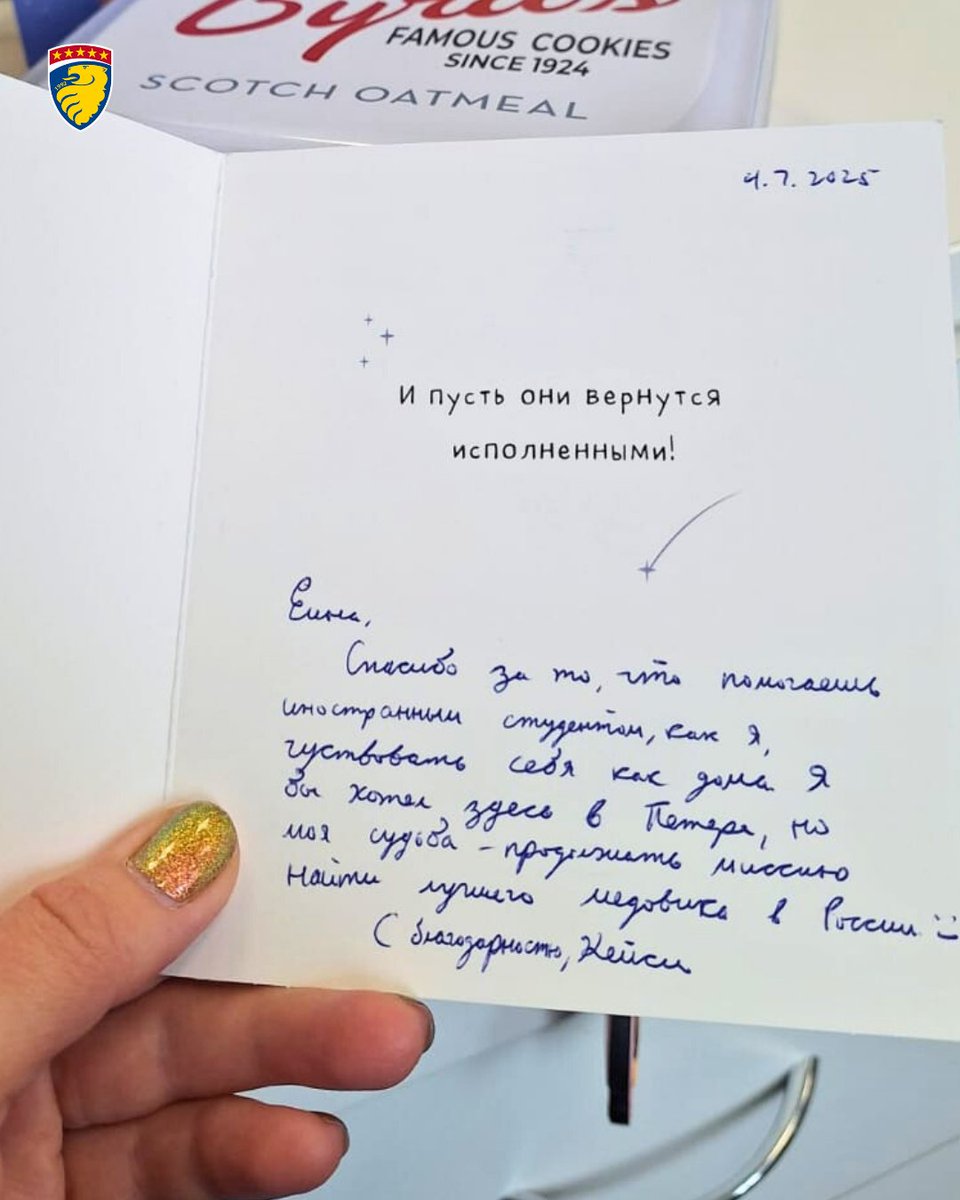 FAMOUS COOKIES
SINCE 1924
SCOTCH OATMEAL
1992
4.7.2025
И пусть они вернутся
исполненными!
Спасибо за то, что помогаешь
иностранным студентом, как я,
чуствовать себя как дома. Я
бы хотел здесь в Петере, но
моя судьба - продолжить миссию
найти лучшего медовика в России :)
С благодарностью, Кейси